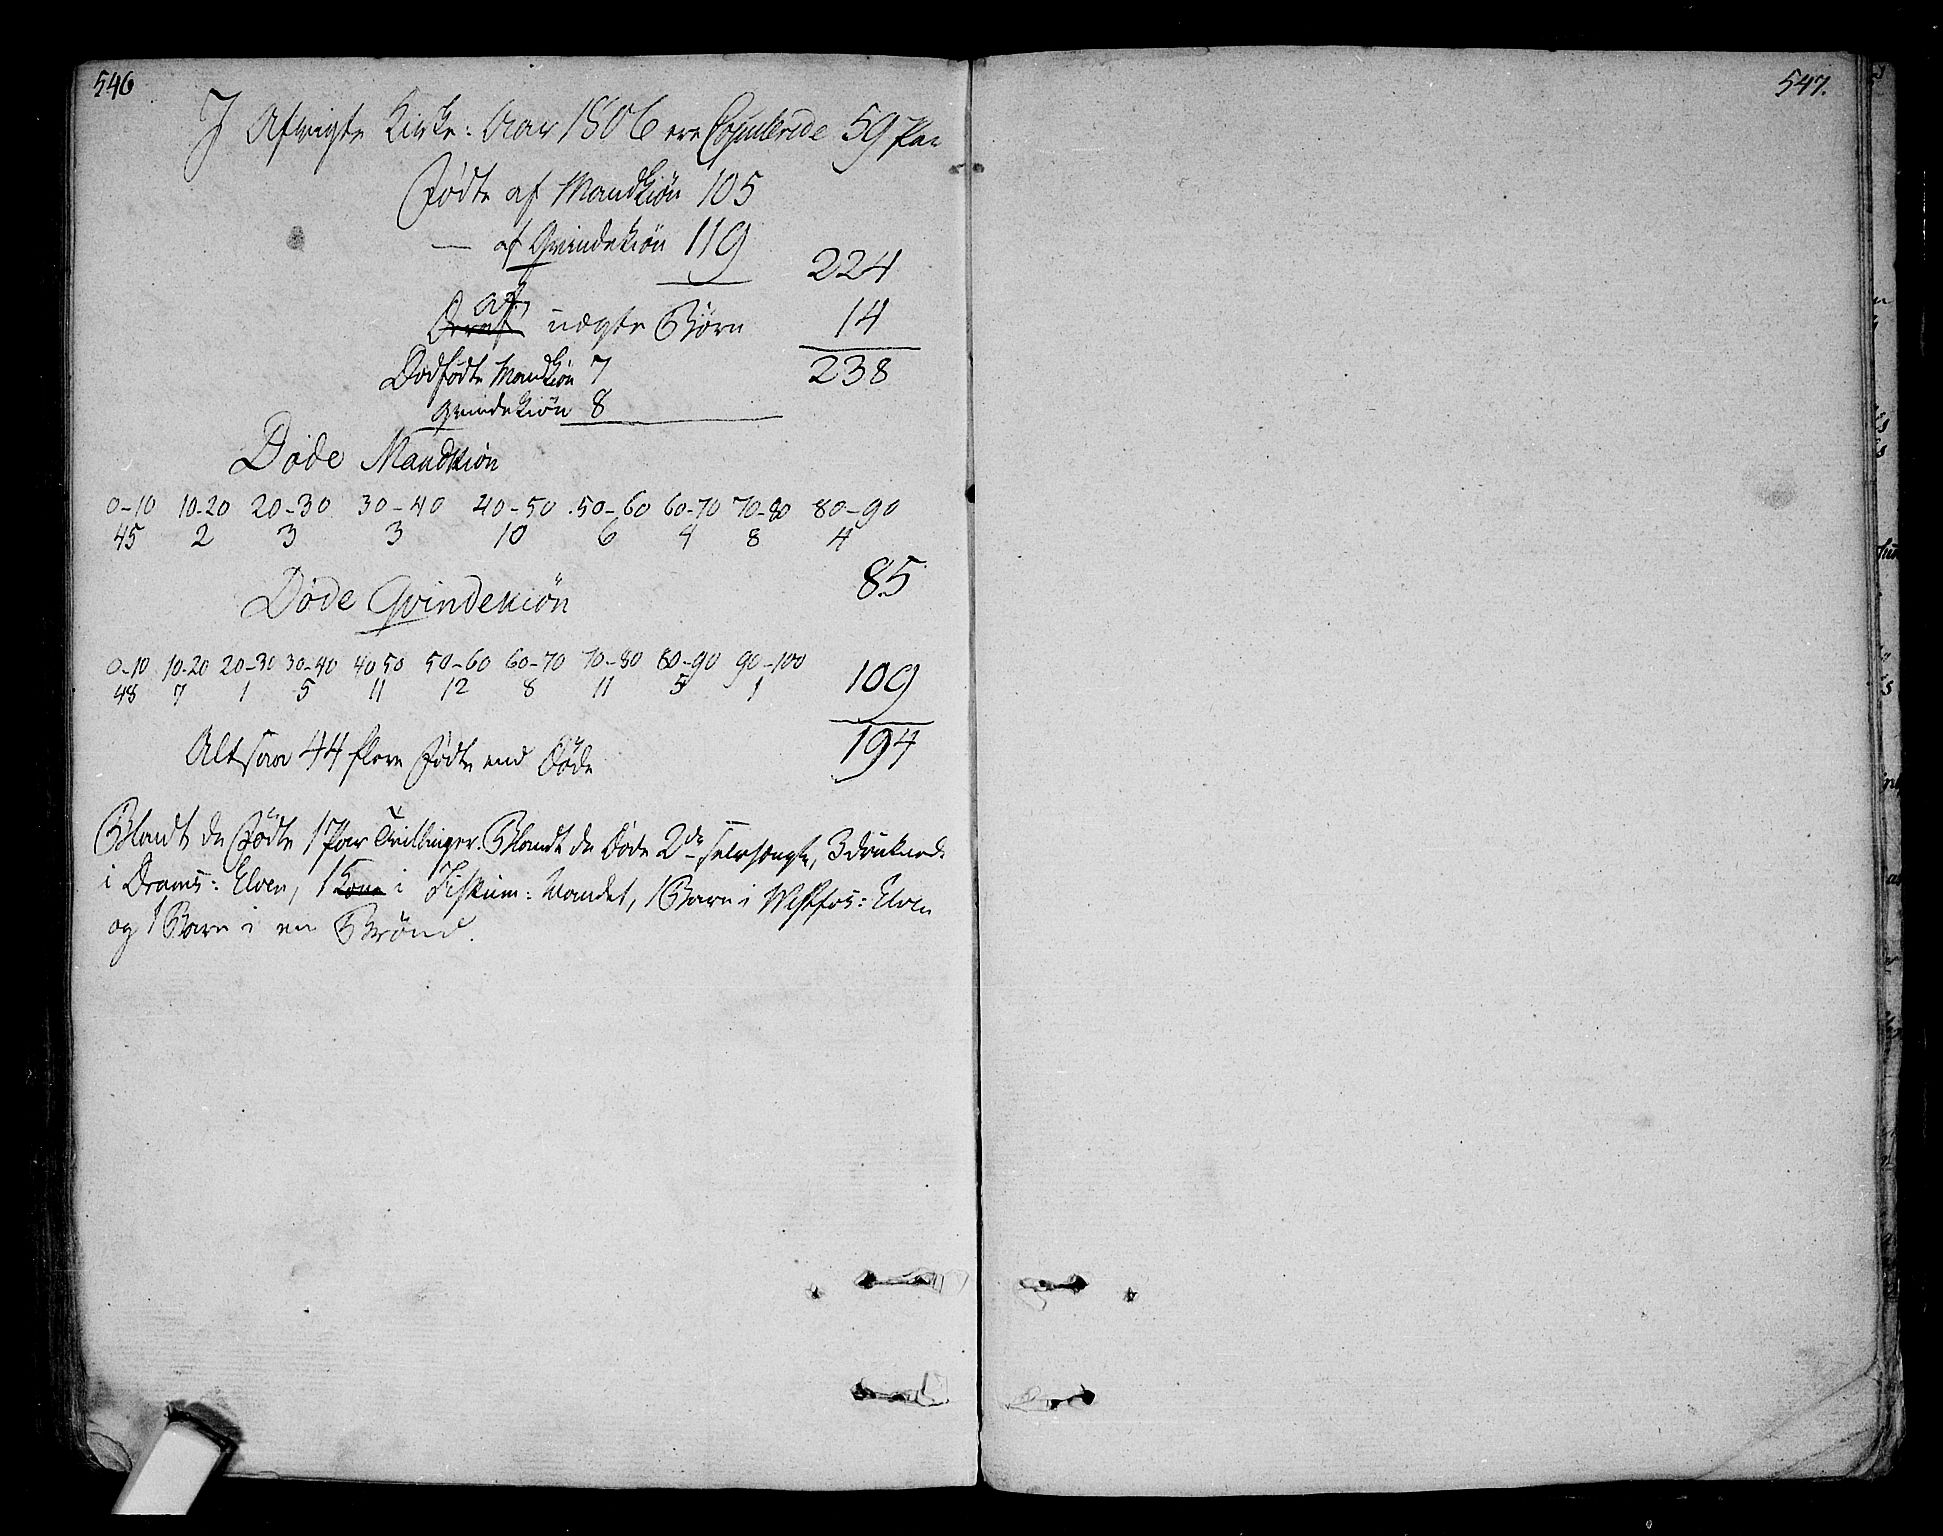 546
J Afvigte Kirke: Aar 1806 ere Copulerede 59 Par
Fødte af Mandkiøn 105
— af Qvindekiøn 119
224
af
Deraf uægte Børn 14
238
Dødfødte Mandkiøn 7
Qvindekiøn 8
Døde Mandkiøn
0-10 10-20 20-30 30-40 40-50 50-60 60-70 70-80 80-90
45 2 3 3 10 6 4 8 4
85
Døde Qvindekiøn
0-10 10-20 20-30 30-40 40-50 50-60 60-70 70-80 80-90 90-100
48 7 1 5 11 12 8 11 5 1
109
194
Altsaa 44 flere Fødte end Døde
Blandt de Fødte 1 Par Trillinger. Blandt de Døde 2de, 3 druknede
i Drams: Elven, 1 Kone i Fiskum: Vandet, 1 Barn i Vestfos: Elven
og 1 Barn i en Brønd.
547.